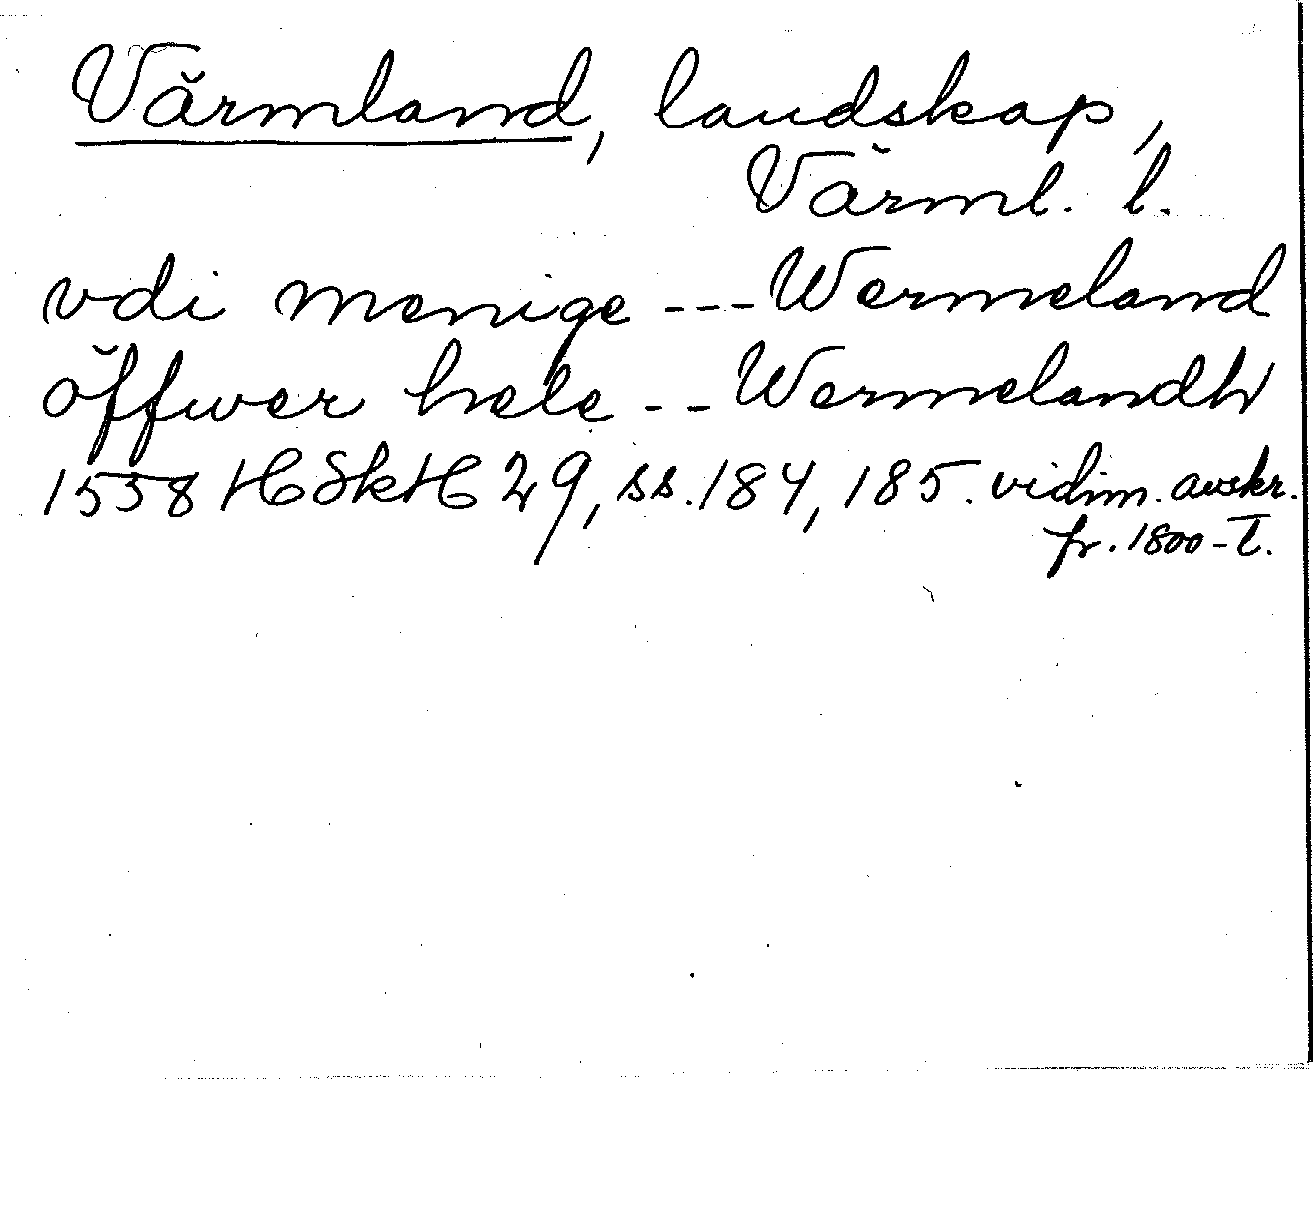 Värmland, landskap,
Värml. l.
vdi menige --- Wermeland
öffwer hele -- Wermelandh
1558 HSkH 29, ss. 184, 185. vidim. avskr.
fr. 1800-t.